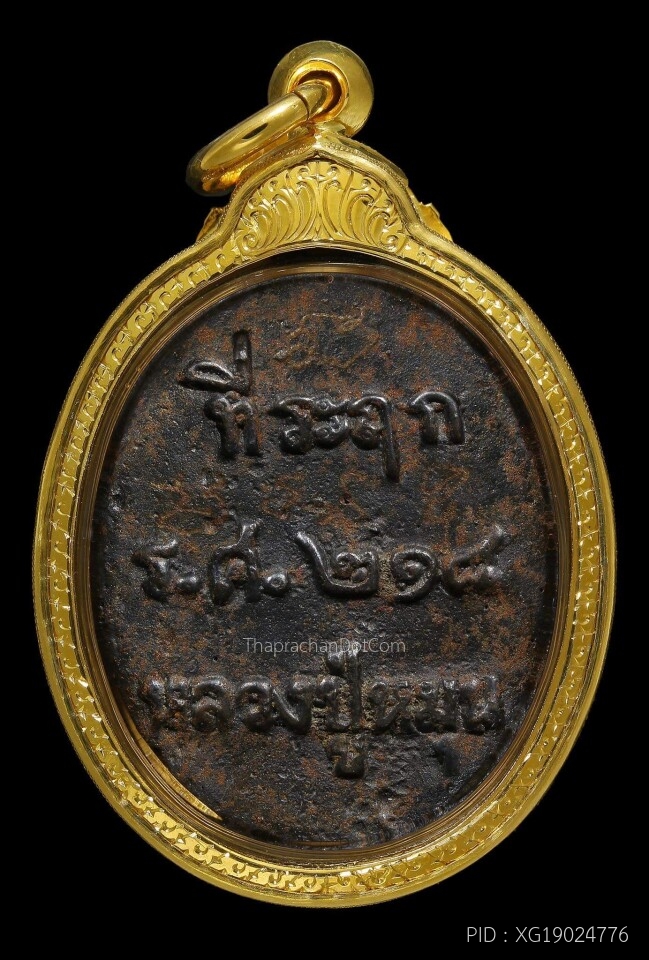 ที่ระฤก
ร.ศ.๒๑๘
หลวงปู่หมุน
ThaprachanDotCom
PID : XG19024776